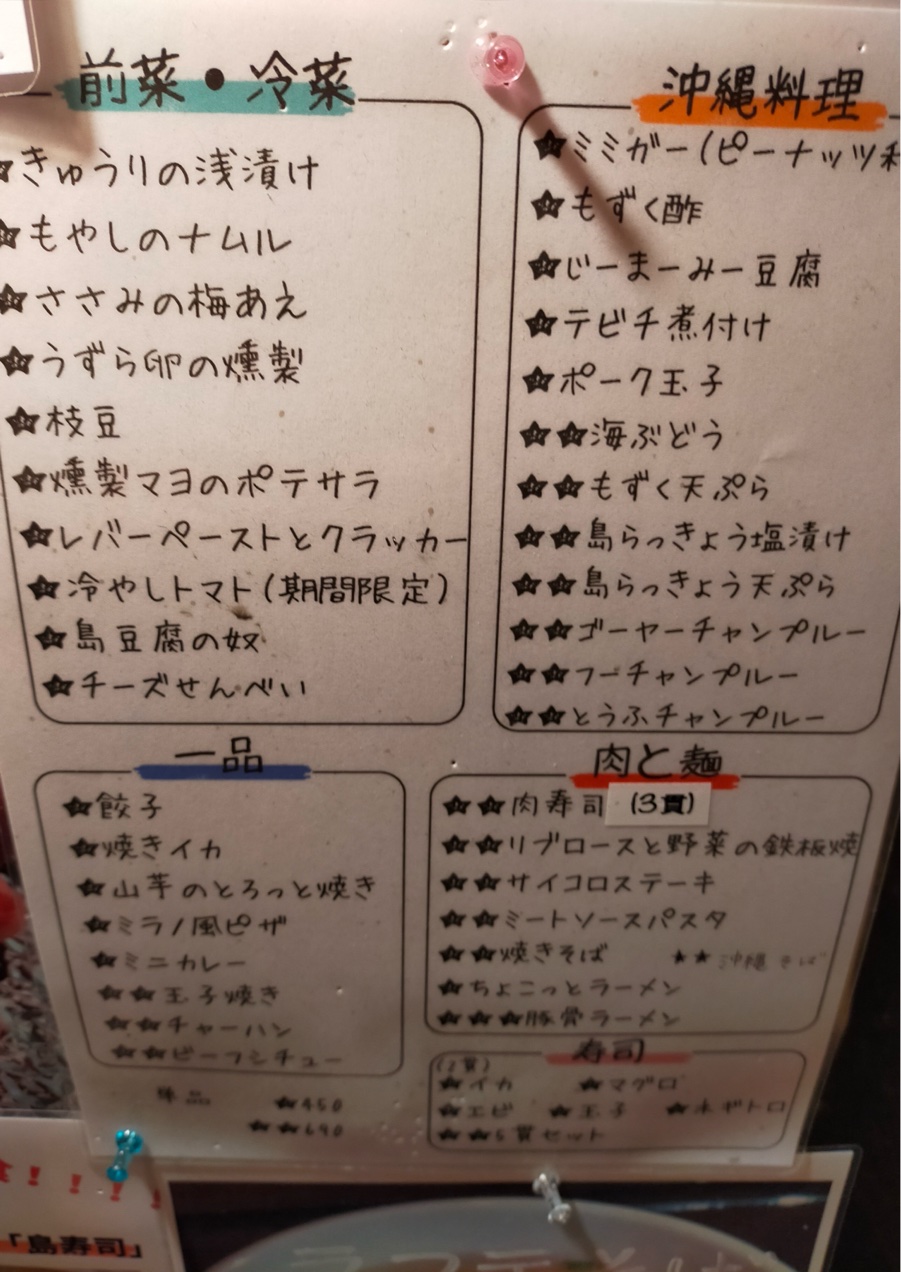 前菜・冷菜
★きゅうりの浅漬け
★もやしのナムル
★ささみの梅あえ
★うずら卵の燻製
★枝豆
★燻製マヨのポテサラ
★レバーペーストとクラッカー
★冷やしトマト(期間限定)
★島豆腐の奴
★チーズせんべい
沖縄料理
★ミミガー(ピーナッツ
★もずく酢
★じーまーみー豆腐
★テビチ煮付け
★ポーク玉子
★★海ぶどう
★★もずく天ぷら
★★島らっきょう塩漬け
★★島らっきょう天ぷら
★★ゴーヤーチャンプルー
★★フーチャンプルー
★★とうふチャンプルー
一品
★餃子
★焼きイカ
★山芋のとろっと焼き
★ミラノ風ピザ
★ミニカレー
★★玉子焼き
★★チャーハン
★★ビーフシチュー
単品
★450
★★690
肉と麺
★★肉寿司 (3貫)
★★リブロースと野菜の鉄板焼
★★サイコロステーキ
★★ミートソースパスタ
★★焼きそば ★★沖縄そば
★ちょこっとラーメン
★★★豚骨ラーメン
寿司
(2貫)
★イカ ★マグロ
★エビ ★玉子 ★ネギトロ
★★5貫セット
!!!!
「島寿司」